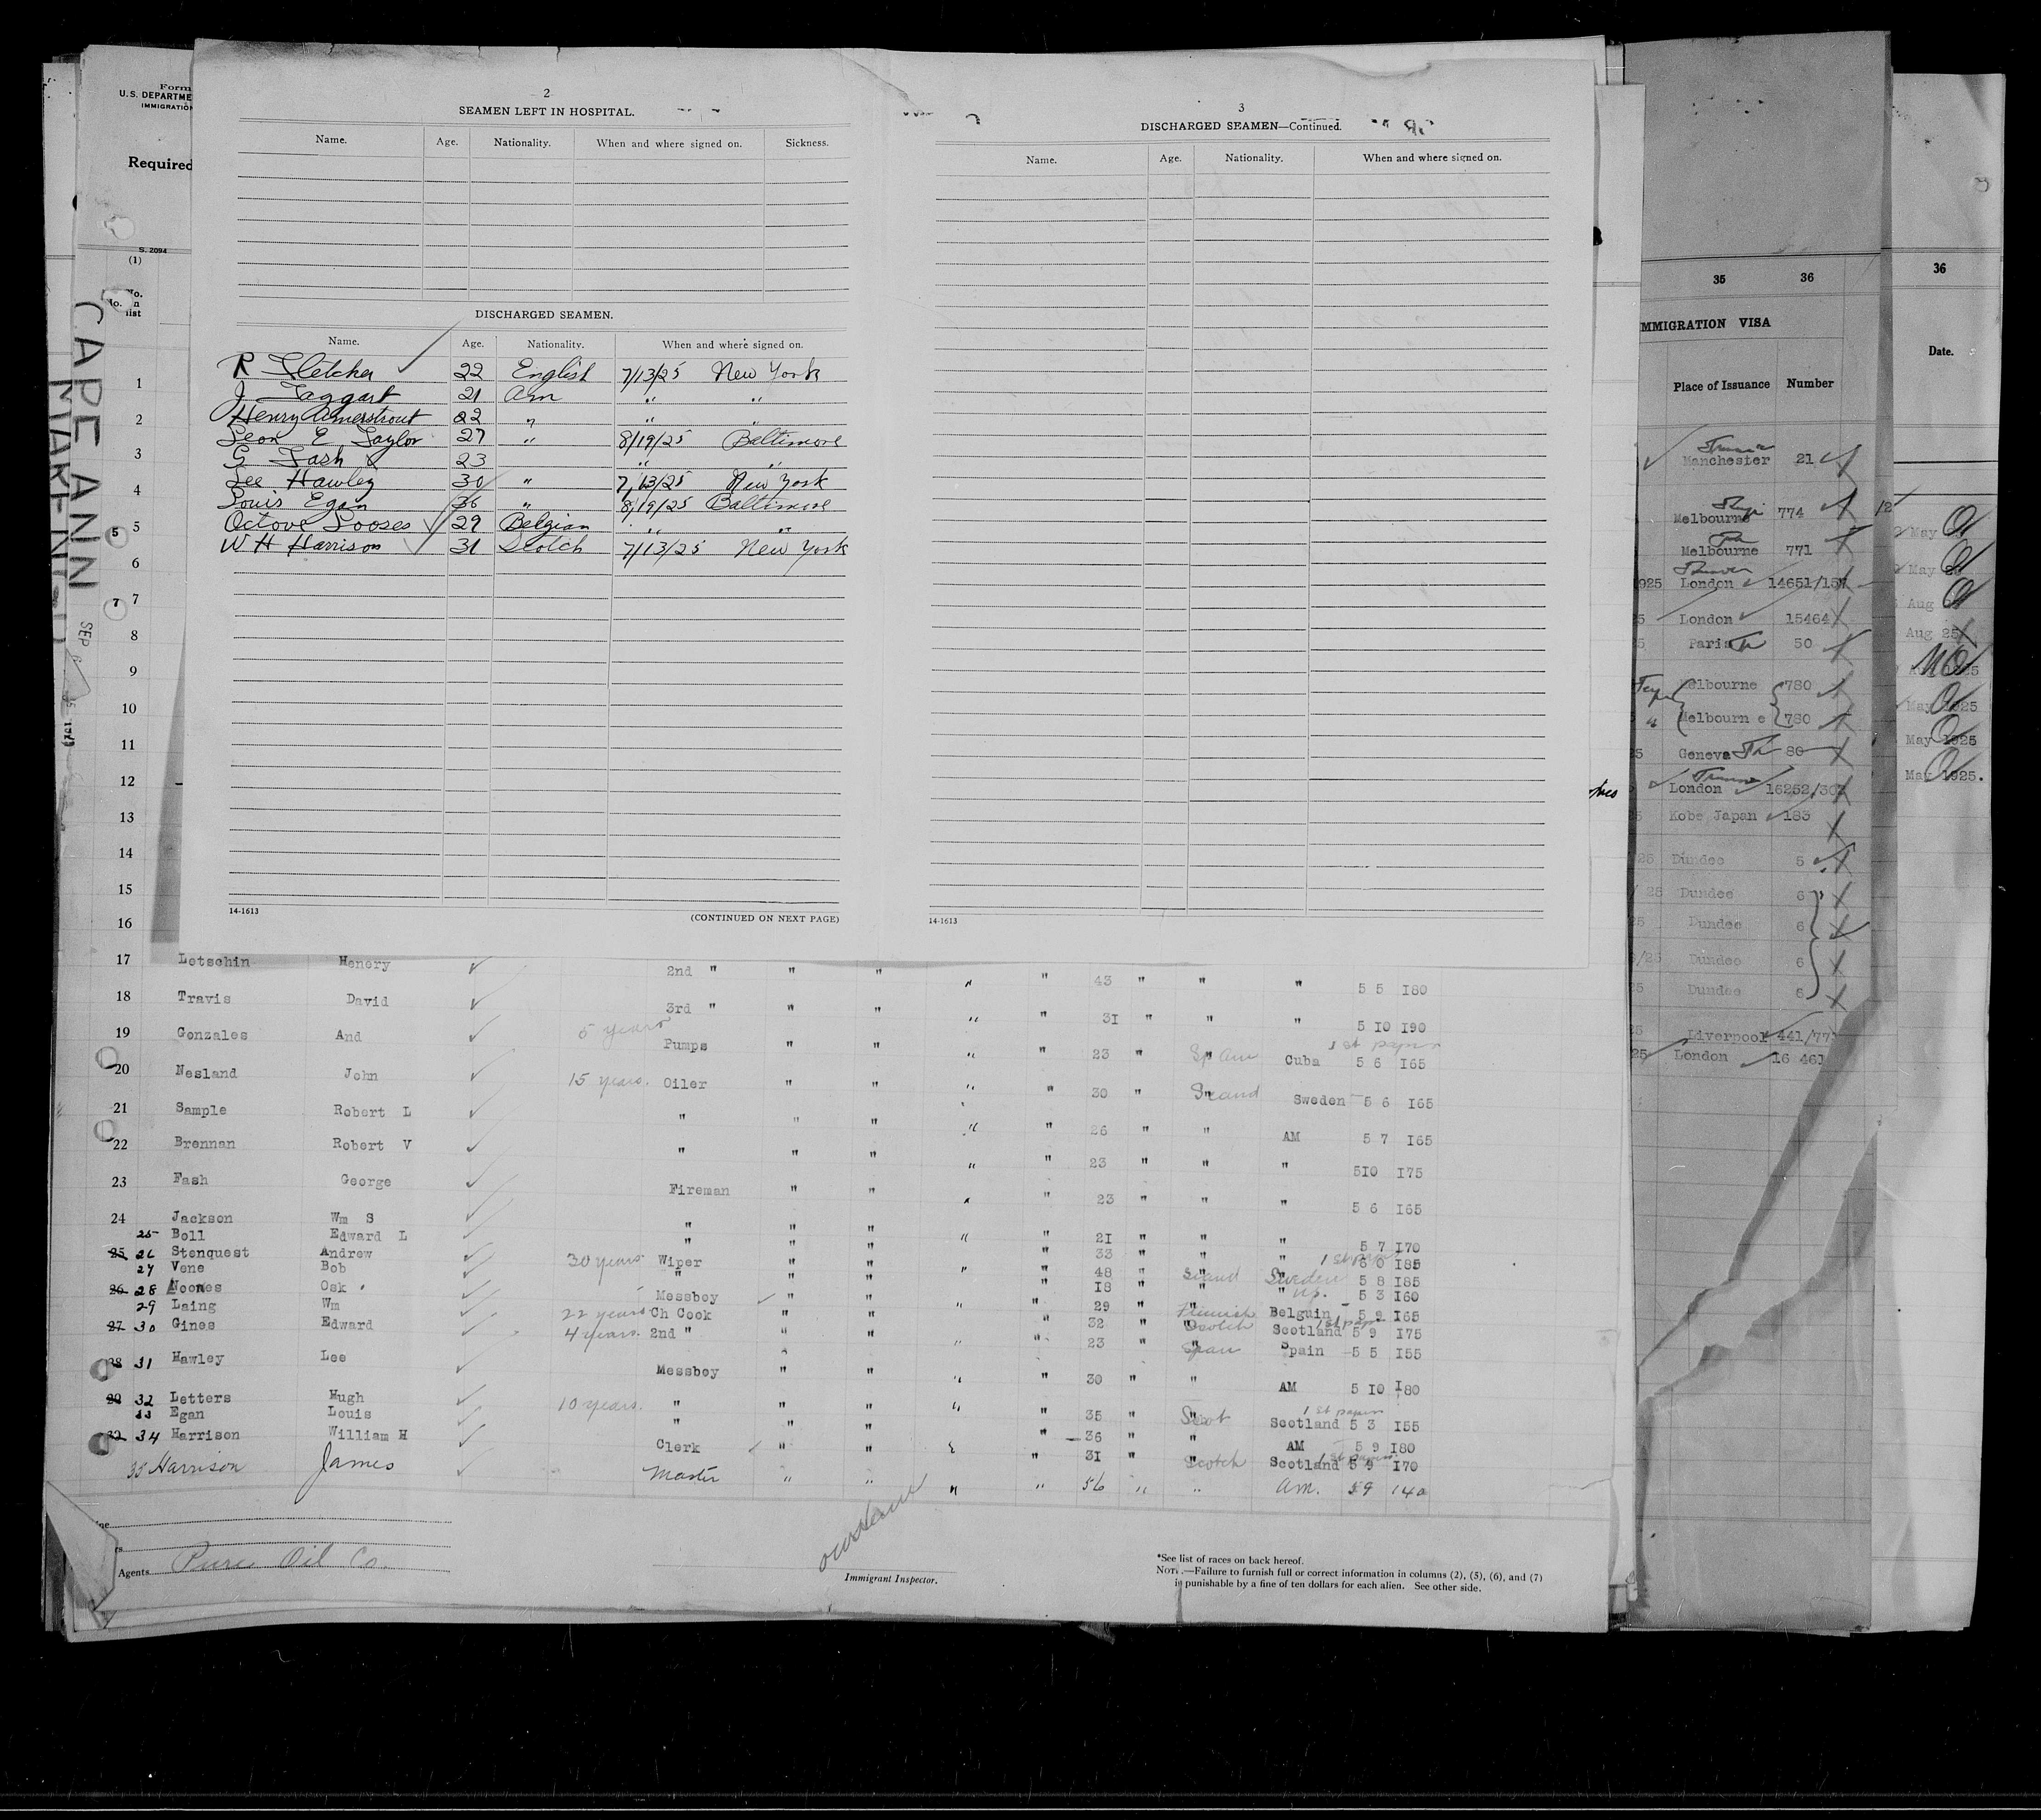 2
SEAMEN LEFT IN HOSPITAL.
Name. Age. Nationality. When and where signed on. Sickness.
DISCHARGED SEAMEN.
Name. Age. Nationality. When and where signed on.
R Fletcher 22 English 7/13/25 New York
J. Taggart 21 Am " "
Henry Armerstrout 22 " " "
Leon E Taylor 27 " 8/19/25 Baltimore
G Fash 23 " "
Lee Hawley 30 " 7/13/25 New York
Louis Egan 36 " 8/19/25 Baltimore
Octove Looses 29 Belgian " "
W H Harrison 31 Scotch 7/13/25 New York
14-1613 (CONTINUED ON NEXT PAGE)
3
DISCHARGED SEAMEN—Continued.
Name. Age. Nationality. When and where signed on.
14-1613
Form
U.S. DEPARTME
IMMIGRATION
Required
S. 2094
(1)
No.
list
CAPE ANN
SEP 6
1
2
3
4
5 5
6
7 7
8
9
10
11
12
13
14
15
16
17 Letschin Henery 2nd " " " " " 43 " " " 5 5 I80
18 Travis David 3rd " " " " " 31 " " " 5 10 I90
19 Gonzales And 5 years Pumps " " " " 23 " Spain Cuba 1st papers 5 6 I65
20 Nesland John 15 years. Oiler " " " " 30 " Scand Sweden 5 6 I65
21 Sample Robert L " " " " " 26 " " AM 5 7 I65
22 Brennan Robert V " " " " " 23 " " " 510 I75
23 Fash George Fireman " " " " 23 " " " 5 6 I65
24 Jackson Wm S " " " " " 21 " " " 5 7 I70
25 Boll Edward L " " " " 33 " " " 6 0 I85
25 26 Stenquest Andrew 30 years Wiper " " " " 48 " Scand Sweden 1st papers 5 8 I85
27 Vene Bob " " " " I8 " " " 5 3 I60
26 28 Noones Osk Messboy " " " 29 " Flemish Belguin 5 9 I65
29 Laing Wm 22 years Ch Cook " " " " 32 " Scotch Scotland 1st papers 5 9 I75
27 30 Gines Edward 4 years. 2nd " " " " " 23 " Span Spain 5 5 I55
28 31 Hawley Lee Messboy " " " " 30 " " AM 5 10 I80
29 32 Letters Hugh 10 years. " " " " " 35 " Scot Scotland 1st papers 5 3 I55
33 Egan Louis " " " " 36 " " AM 5 9 I80
34 Harrison William H Clerk " " " 31 " Scotch Scotland 1st papers 5 9 I70
35 Harrison James Master " " " " 56 " " Am. 5 9 140
Agents Pure Oil Co.
Immigrant Inspector.
*See list of races on back hereof.
NOTE.—Failure to furnish full or correct information in columns (2), (5), (6), and (7)
is punishable by a fine of ten dollars for each alien. See other side.
35 36
IMMIGRATION VISA
Place of Issuance Number
Manchester 21
Melbourne 774
Melbourne 771
925 London 14651/157
5 London 15464
5 Paris 50
elbourne 780
" Melbourn e 780
25 Geneva 80
London 16252/303
25 Kobe Japan 183
25 Dundee 5
/ 25 Dundee 6
25 Dundee 6
/25 Dundee 6
25 Dundee 6
25 Liverpool 441/77
25 London 16 461
36
Date.
May
May 2
Aug 2
Aug 25
1925
May 1925
May 1925
May 1925.